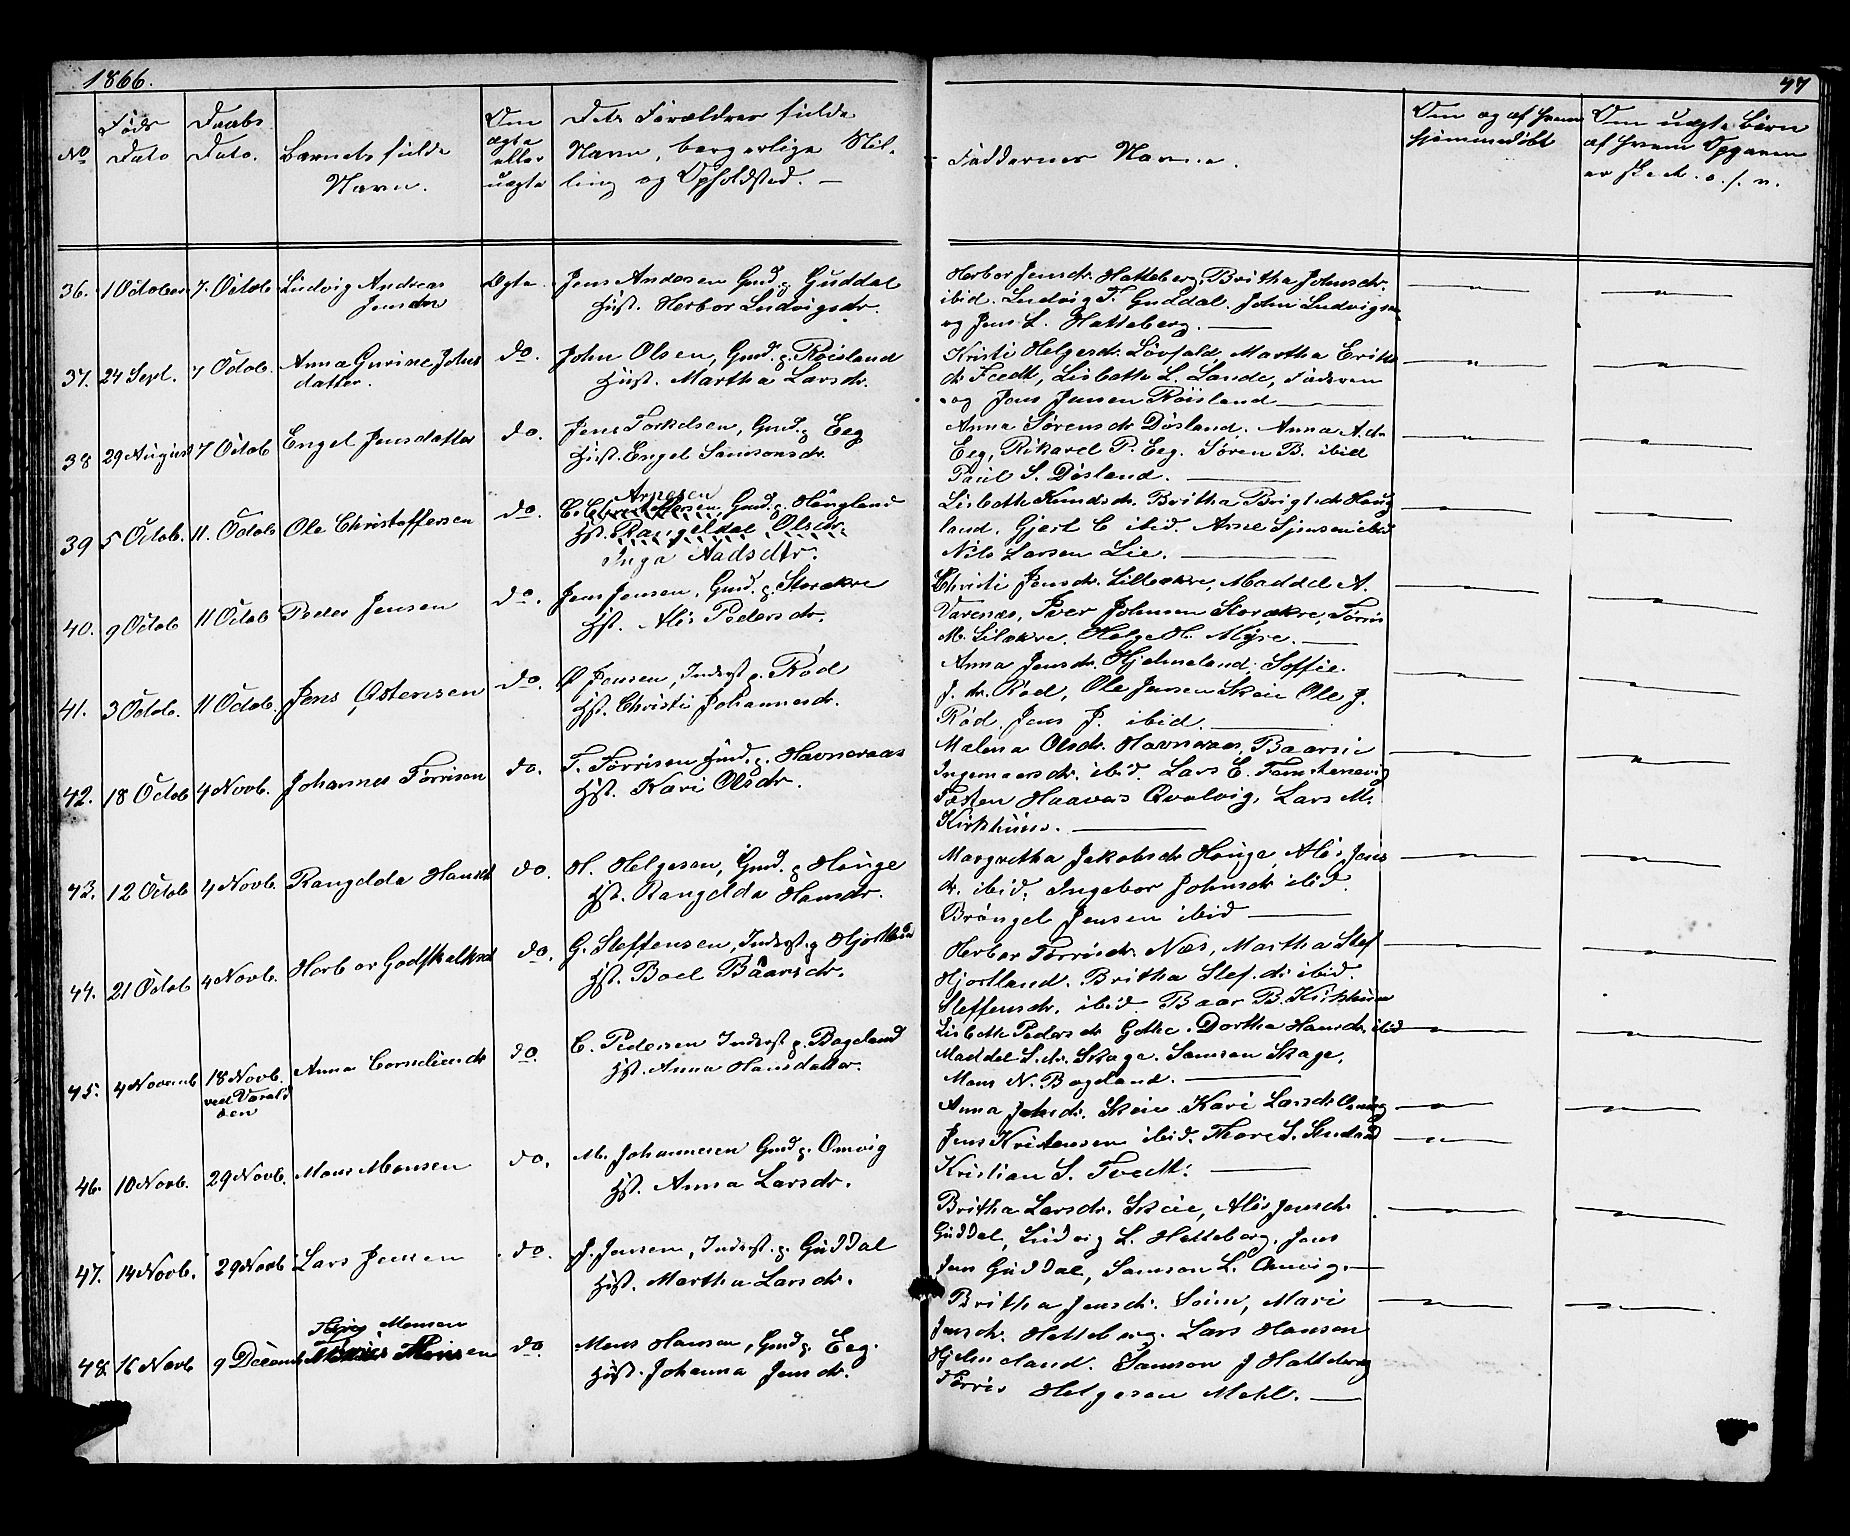 1866.
47
No
Føds Dato
Daabs Dato.
Barnets fulde Navn.
Om ægte eller uægte
Dets Forældres fulde Navn, borgerlige Stilling og Opholdsted. —
Faddernes Navne.
Om og af hvem hjemmedøbt
Om uægte Børn af hvem Opgaven er skeet. o. s. v.
36. 1 October 7. Octob Ludvig Andreas Jensen Ægte. Jens Andersen Gmd. p. Guddal
Hust. Herbor Ludvigsdr.
Herbor Jensdr. Hatteberg, Britha Johnsdr.
ibid. Ludvig T. Guddal. John Ludvigsen
og Jens L. Hatteberg. —
37. 24 Sept. 7 Octob. Anna Gurine Johns datter. do. John Olsen, Gmd. p. Røisland
Hust. Martha Larsdr.
Kristi Helgesdr. Løvfald, Martha Eriks
dr. Tvedt, Lisbeth L. Lande, Faderen
og Jens Jensen Røisland —
38 29 August 7 Octob Engel Jensdatter do. Jens Torkelsen, Gmd. p. Eeg
Hust. Engel Samsonsdr.
Anna Sørensdr Døsland. Anna A. dr
Eeg, Rikard P. Eeg. Søren B. ibid
Paul S. Døsland. —
39 5 Octob. 11. Octob Ole Christoffersen do. Arnesen
C. Christoffersen, Gmd. p. Haugland
Hst. Rangeldal Olsdr.
Inga Aadsdtr.
Lisbeth Knudsdr. Britha Brigt.dr Haug
land. Gjert C ibid. Arne Sjursen ibid
Nils Larsen Lie. —
40. 9 Octob 11 Octob Peder Jensen do. Jens Jensen, Gmd. p. Storækre
Hst. Alis Pedersdr.
Christi Jensdr. Lilleækre, Maddel A.
Varenes, Iver Johnsen Storækre, Tørris
M. Lilækre. Helge H. Myre. —
41. 3 Octob. 11 Octob. Jens Østensen do. Ø Jensen, Inderst p. Rød
Hst. Christi Johannesdr.
Anna Jensdr. Hjelmeland. Soffie.
J. dr. Rød, Ole Jensen Skeie Ole J.
Rød. Jens J. ibid. —
42. 18 Octob 4 Novb. Johannes Tørrisen do. T. Tørrisen Gmd. p. Havneraas
Hst. Kari Olsdr.
Malena Olsdr. Havneraas, Baarsie
Ingemarsdr. ibid. Lars E.
Tosten Haavas Qvalvig, Lars M.
Kirkhuus. —
43. 12 Octob 4 Novb. Rangdda Hansdr do. H. Helgesen, Gmd. p Hauge
Hst. Rangdda Hansdr.
Margretha Jakobsdr Hauge, Alis Jens
dr. ibid. Ingebor Johnsdr ibid.
Brøngel Jensen ibid —
44. 21 Octob 4 Novb. Herbor Godskalksd do. G. Steffensen, Inderst. p Hjortland
Hst. Boel Baarsdr.
Herbor Tørrisdr. Næs, Martha Stef
Hjortland. Britha Stef. dr. ibid.
Steffensdr. ibid. Baar B. Kirkhuus
45. 4 Novemb 18 Novb. ved Varalsøen Anna Corneliusdr do. C. Pedersen Inderst p. Bogeland
Hst. Anna Hansdatter.
Lisbeth Pedersdr Gethe. Dorthea Hansdr. ibid
Maddel S. dr. Skage. Samson Skage,
Mons N. Bogeland. —
46. 10 Novb. 29 Novb. Mons Monsen do. M. Johannesen Gmd p. Omvig
Hst. Anna Larsdr.
Anna Johsdr. Skeie. Kari Larsdr Omvig
Jens Kristensen ibid. Thore S.
Kristian S. Tvedt. —
47. 14 Novb. 29 Novb Lars Jensen do. J. Jensen, Inderst. p. Guddal
Hust. Martha Larsdr.
Britha Larsdr. Skeie, Alis Jensdr
Guddal, Ludvig L. Hatteberg. Jens
Jens Guddal, Samson L. Omvig. —
48. 16 Novb 9 Decemb Monsen do. Mons Hansen, Gmd p. Eeg.
Hust. Johanna Jensdr.
Britha Jensdr. Seim, Mari
Jensdr. Hatteberg. Lars Hansen
Hjelmeland. Samson J Hatteberg
Tørris Helgesen Mehl. —